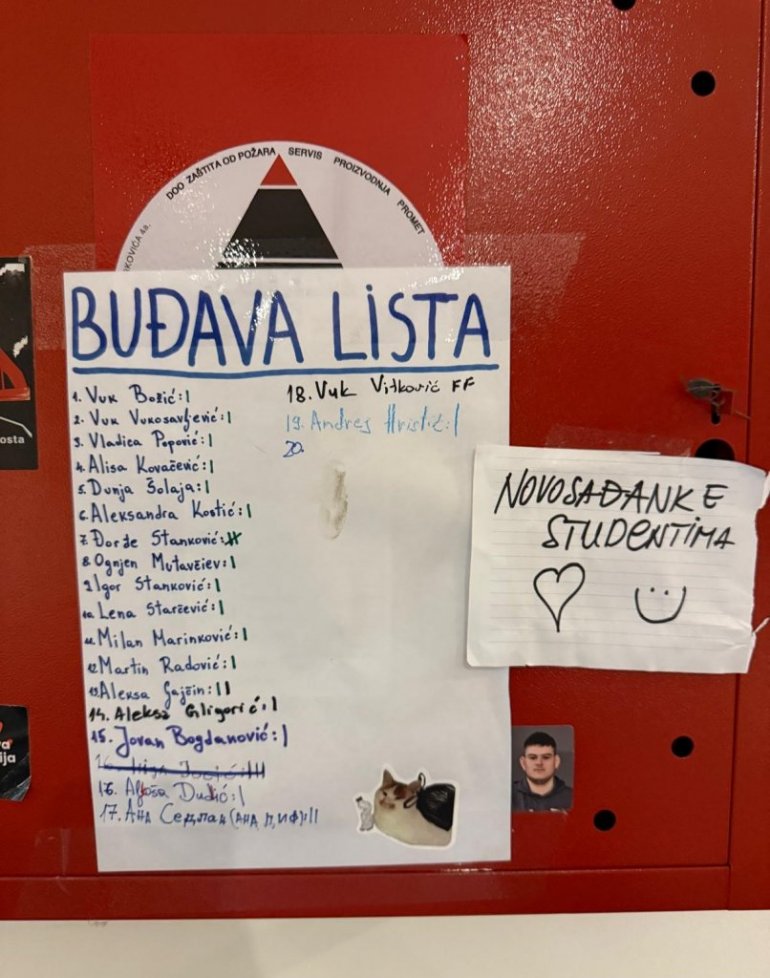 KOVIĆA 4a,
DOO ZAŠTITA OD POŽARA SERVIS PROIZVODNJA PROMET
BUĐAVA LISTA
1. Vuk Božić: |
2. Vuk Vukosavljević: |
3. Vladica Popović: |
4. Alisa Kovačević: |
5. Dunja Šolaja: |
6. Aleksandra Kostić: |
7. Đorđe Stanković:
8. Ognjen Mutavčiev: |
9. Igor Stanković: |
10. Lena Starčević: |
11. Milan Marinković: |
12. Martin Radović: |
13. Aleksa Gajčin: ||
14. Aleksa Gligorić: |
15. Jovan Bogdanović: |
16. Ilija Jović: |||
16. Aljoša Dudić: |
17. Ана Седлан (АНА П, ИФ): ||
18. Vuk Vitković FF
19. Andrej Hristić: |
20.
NOVOSAĐANKE
STUDENTIMA
osta
va
ija